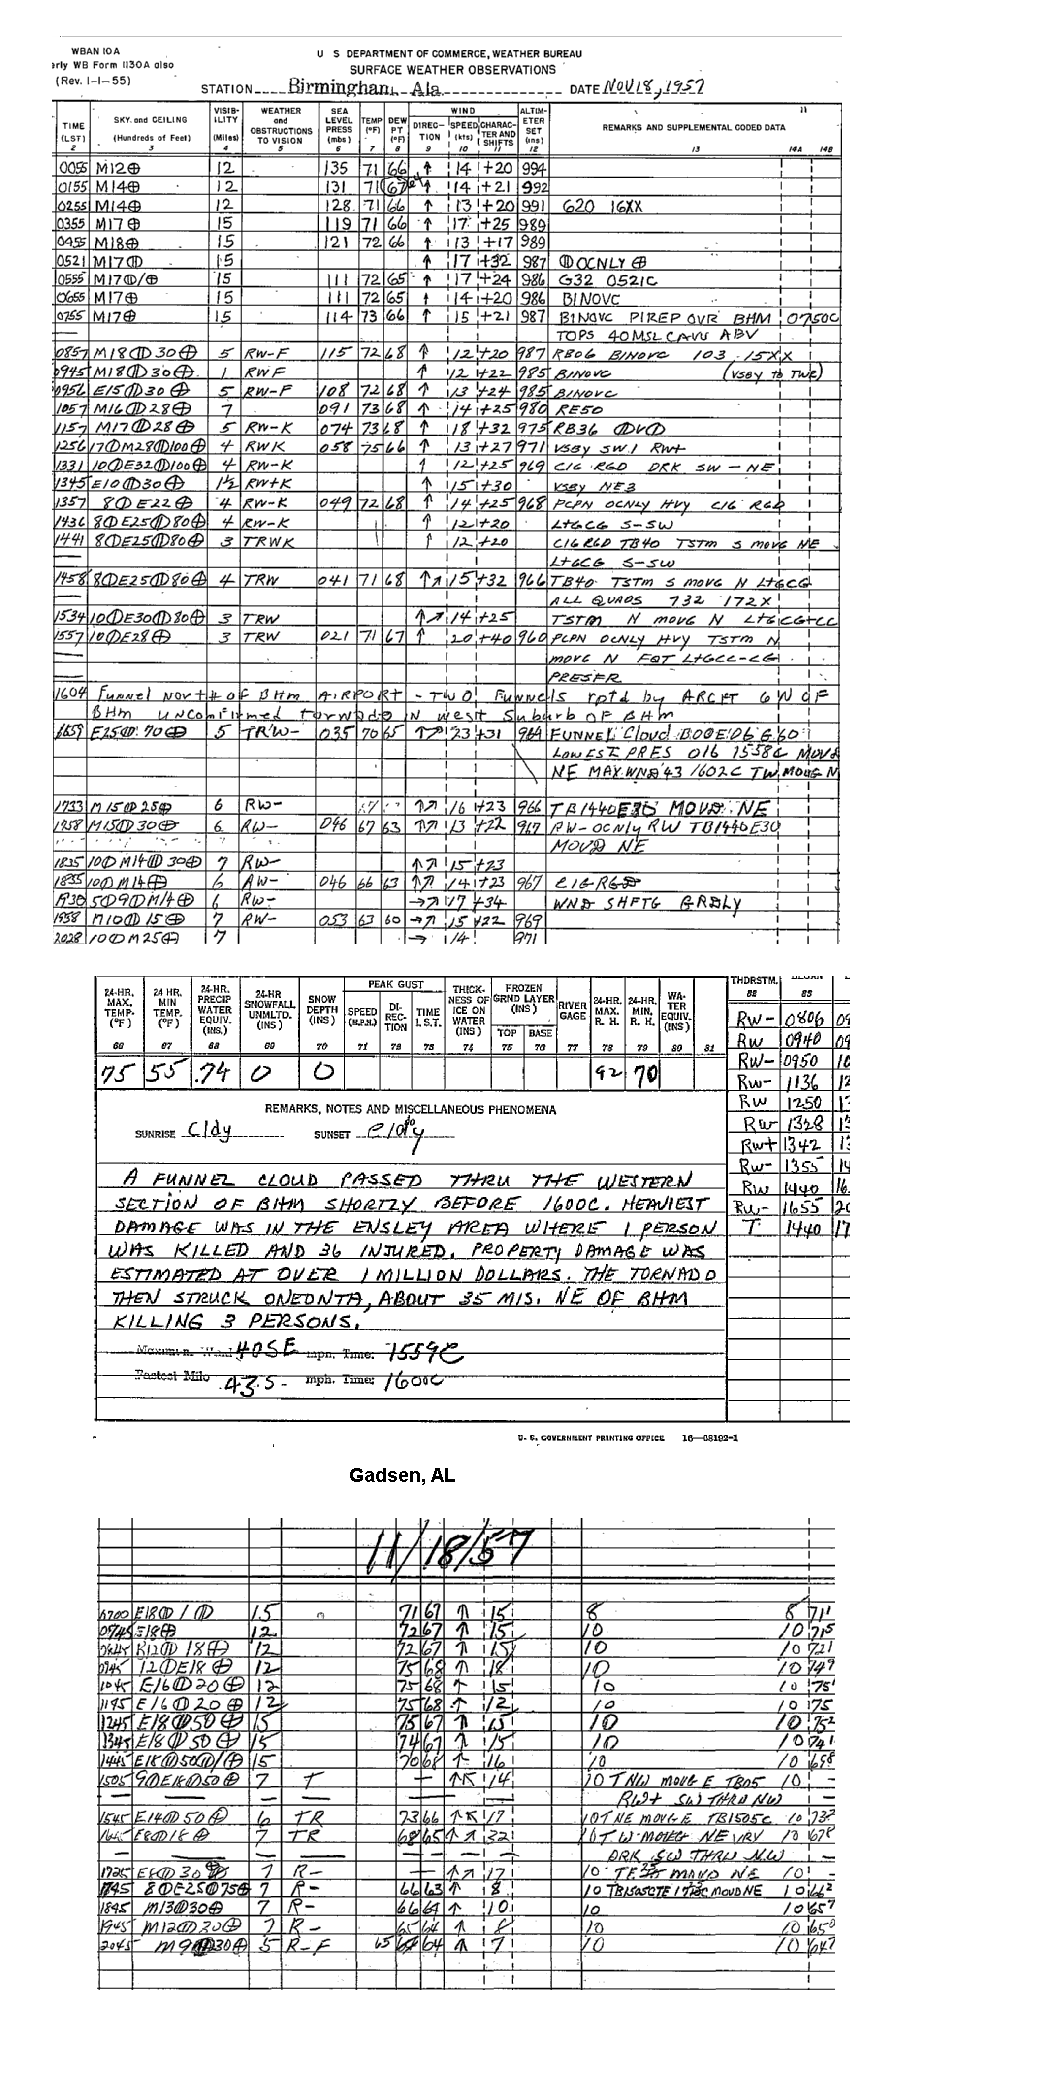 WBAN 10A
rly WB Form 1130A also
(Rev. 1-1-55)
U S DEPARTMENT OF COMMERCE, WEATHER BUREAU
SURFACE WEATHER OBSERVATIONS
STATION Birmingham, Ala. DATE NOV 18, 1957
TIME (LST) SKY and CEILING (Hundreds of Feet) VISIBILITY (Miles) WEATHER and OBSTRUCTIONS TO VISION SEA LEVEL PRESS (mbs) TEMP (°F) DEW PT (°F) WIND DIRECTION SPEED (kts) CHARACTER AND SHIFTS ALTIMETER SET (ins) REMARKS AND SUPPLEMENTAL CODED DATA
2 3 4 5 6 7 8 9 10 11 12 13 14A 14B
0055 M12⊕ 12 135 71 66 ↑ 14 +20 994
0155 M14⊕ 12 131 71 67 ↑ 14 +21 992
0255 M14⊕ 12 128 71 66 ↑ 13 +20 991 620 16XX
0355 M17⊕ 15 119 71 66 ↑ 17 +25 989
0455 M18⊕ 15 121 72 66 ↑ 13 +17 989
0521 M17⦷ 15 ↑ 17 +32 987 ⦷ OCNLY ⊕
0555 M17⦷/⊕ 15 111 72 65 ↑ 17 +24 986 G32 0521C
0655 M17⊕ 15 111 72 65 ↑ 14 +20 986 BINOVC
0755 M17⊕ 15 114 73 66 ↑ 15 +21 987 BINOVC PIREP OVR BHM 0750C
TOPS 40MSL CAVU ABV
0857 M18⦷30⊕ 5 RW-F 115 72 68 ↑ 12 +20 987 RB06 BINOVC 103 15XX
0945 M18⦷30⊕ 1 RWF ↑ 12 +22 985 BINOVC (VSBY TO TWR)
0956 E15⦷30⊕ 5 RW-F 108 72 68 ↑ 13 +24 985 BINOVC
1057 M16⦷28⊕ 7 091 73 68 ↑ 14 +25 980 RE50
1157 M17⦷28⊕ 5 RW-K 074 73 68 ↑ 18 +32 975 RB36 ⦷V⦶
1256 17⦶M28⦷100⊕ 4 RWK 058 75 66 ↑ 13 +27 971 VSBY SW1 RW+
1331 10⦶E32⦷100⊕ 4 RW-K ↑ 12 +25 969 CIG RGD DRK SW-NE
1345 E10⦷30⊕ 1½ RW+K ↑ 15 +30 VSBY NE3
1357 8⦶E22⊕ 4 RW-K 049 72 68 ↑ 14 +25 968 PCPN OCNLY HVY CIG RGD
1436 8⦶E25⦷80⊕ 4 RW-K ↑ 12 +20 LTGCG S-SW
1441 8⦶E25⦷80⊕ 3 TRWK ↑ 12 +20 CIG RGD TB40 TSTM S MOVG NE
LTGCG S-SW
1458 8⦶E25⦷80⊕ 4 TRW 041 71 68 ↑↗ 15 +32 966 TB40 TSTM S MOVG N LTGCG
ALL QUADS 732 172X
1534 10⦶E30⦷80⊕ 3 TRW ↑↗ 14 +25 TSTM N MOVG N LTGCG+CC
1557 10⦶E28⊕ 3 TRW 021 71 67 ↑ 20 +40 960 PCPN OCNLY HVY TSTM N
MOVG N FQT LTGCC-CG
PRESFR
1604 Funnel North of BHM AIRPORT - TWO Funnels rptd by ARCFT 6 N OF
BHM unconfirmed tornado N west suburb OF BHM
1659 E25⦷70⊕ 5 TRW- 035 70 65 ↑↗ 23 +31 964 FUNNEL Cloud
LOWEST PRES 016 1558C MOVD
NE MAX WND 43 /1602C TW MOVG N
1733 M15⦷25⊕ 6 RW- ↑↗ 16 +23 966 TB1440E30 MOVD NE
1758 M15⦷30⊕ 6 RW- 046 67 63 ↑↗ 13 +22 967 RW- OCNLY RW TB1440E30
MOVD NE
1835 10⦶M14⦷30⊕ 7 RW- ↑↗ 15 +23
1855 10⦶M14⊕ 6 RW- 046 66 63 ↑↗ 14 +23 967 CIG RGD
1930 5⦶9⦶M14⊕ 6 RW- →↗ 17 +34 WND SHFTG GRDLY
1958 M10⦷15⊕ 7 RW- 053 63 60 →↗ 15 +22 969
2028 10⦶M25⊕ 7 → 14 971
24-HR. MAX. TEMP. (°F) 24 HR. MIN TEMP. (°F) 24-HR. PRECIP WATER EQUIV. (INS.) 24-HR SNOWFALL UNMLTD. (INS) SNOW DEPTH (INS) PEAK GUST SPEED (M.P.H.) DIRECTION TIME L.S.T. THICKNESS OF ICE ON WATER (INS) FROZEN GRND LAYER (INS) TOP BASE RIVER GAGE 24-HR. MAX. R. H. 24-HR. MIN. R. H. WATER EQUIV. (INS) THDRSTM.
66 67 68 69 70 71 72 73 74 75 76 77 78 79 80 81 82 83
75 55 .74 0 0 92 70
RW- 0806
RW 0940
RW- 0950
RW- 1136
RW 1250
RW- 1328
RW+ 1342
RW- 1355
RW 1440
RW- 1655
T 1440
REMARKS, NOTES AND MISCELLANEOUS PHENOMENA
SUNRISE Cldy SUNSET cldy
A FUNNEL CLOUD PASSED THRU THE WESTERN
SECTION OF BHM SHORTLY BEFORE 1600C. HEAVIEST
DAMAGE WAS IN THE ENSLEY AREA WHERE 1 PERSON
WAS KILLED AND 36 INJURED. PROPERTY DAMAGE WAS
ESTIMATED AT OVER 1 MILLION DOLLARS. THE TORNADO
THEN STRUCK ONEONTA, ABOUT 35 MIS. NE OF BHM
KILLING 3 PERSONS.
Maximum Wind 40SE mph. Time: 1559C
Fastest Mile 43 S- mph. Time: 1600C
U. S. GOVERNMENT PRINTING OFFICE 16—68192-1
Gadsen, AL
11/18/57
0700 E18⦷/⦷ 15 71 67 ↑ 15 8 8 711
0745 E18⊕ 12 72 67 ↑ 15 10 10 715
0845 12⦷18⊕ 12 72 67 ↑ 15 10 10 721
0945 12⦶E18⊕ 12 75 68 ↑ 18 10 10 749
1045 E16⦷20⊕ 12 75 68 ↑ 15 10 10 75
1145 E16⦷20⊕ 12 75 68 ↑ 12 10 10 75
1245 E18⦷50⊕ 15 75 67 ↑ 15 10 10 752
1345 E18⦷50⊕ 15 74 67 ↑ 15 10 10 741
1445 E18⦷50⦷/⊕ 15 70 68 ↑ 16 10 10 698
1505 9⦶E18⦷50⊕ 7 T — ↑↖ 14 10 T NW MOVG E TB05 10 —
RW+ SW THRU NW
1545 E14⦷50⊕ 6 TR 73 66 ↑↖ 17 10 T NE MOVG E TB1505C 10 732
E8⦷18⊕ 7 TR 68 65 ↑↗ 32 10 T W MOVG NE VRY 10 678
DRK SW THRU NW
1725 E8⦷30⊕ 7 R- — ↑↗ 17 10 MOVD NE 10 —
1745 8⦶E25⦷75⊕ 7 R- 66 63 ↑ 8 10 TB1505C MOVD NE 10 662
1845 M13⦷30⊕ 7 R- 66 64 ↑ 10 10 10 657
1945 M12⦷30⊕ 7 R- 65 64 ↑ 8 10 10 650
2045 M9⦷30⊕ 5 R-F 65 64 ↑ 7 10 10 647